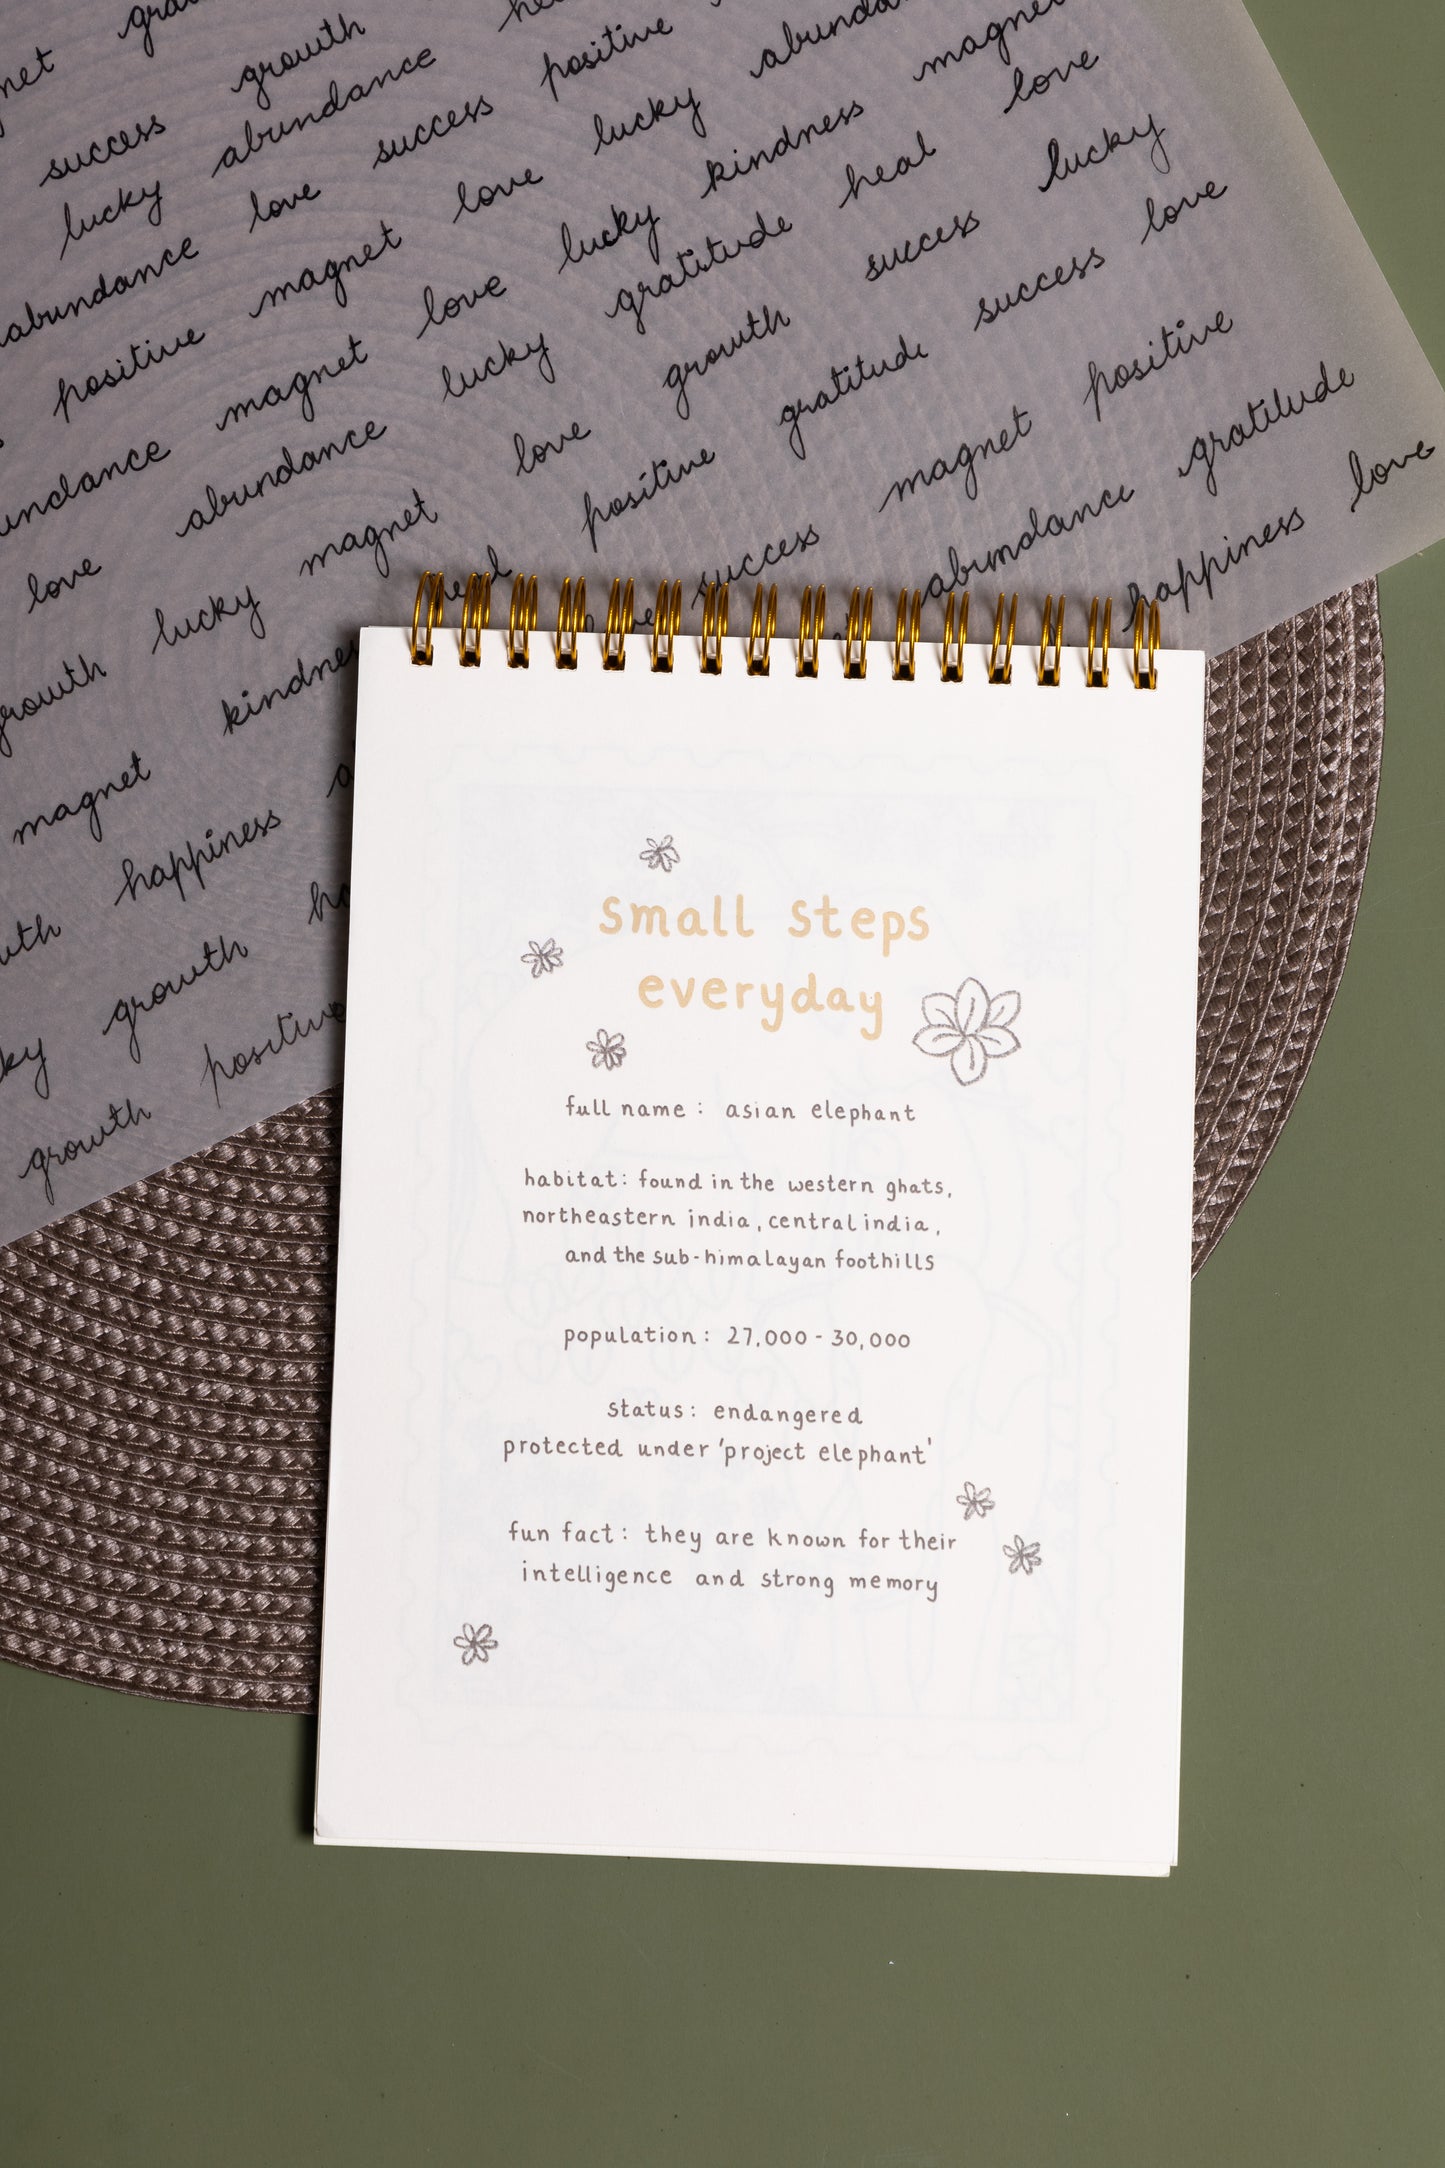 success growth
lucky abundance
abundance love success positive
positive magnet love lucky
magnet love lucky kindness magnet
love abundance lucky gratitude heal love
lucky magnet love growth success lucky
growth kindness heal positive gratitude success love
magnet success magnet positive
happiness abundance gratitude
growth happiness love
growth positive
small steps
everyday
full name : asian elephant
habitat: found in the western ghats,
northeastern india, central india,
and the sub-himalayan foothills
population: 27,000 - 30,000
status: endangered
protected under 'project elephant'
fun fact: they are known for their
intelligence and strong memory